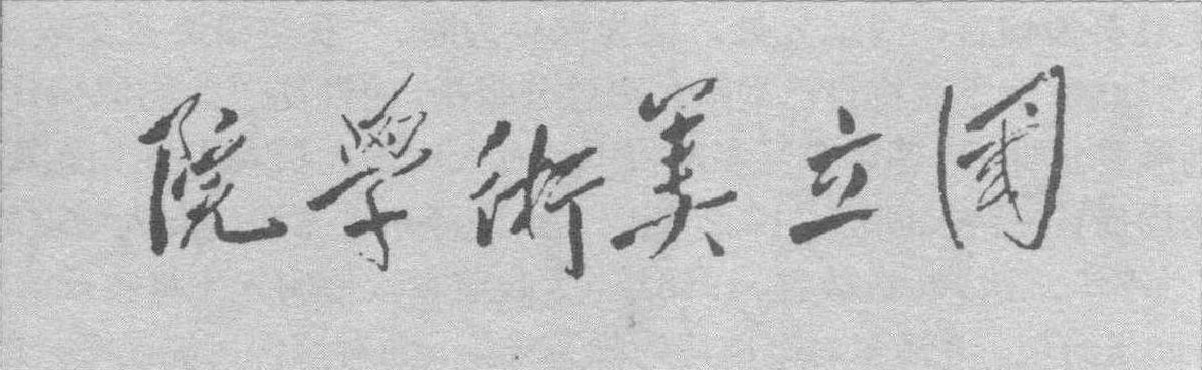 國立美術學院